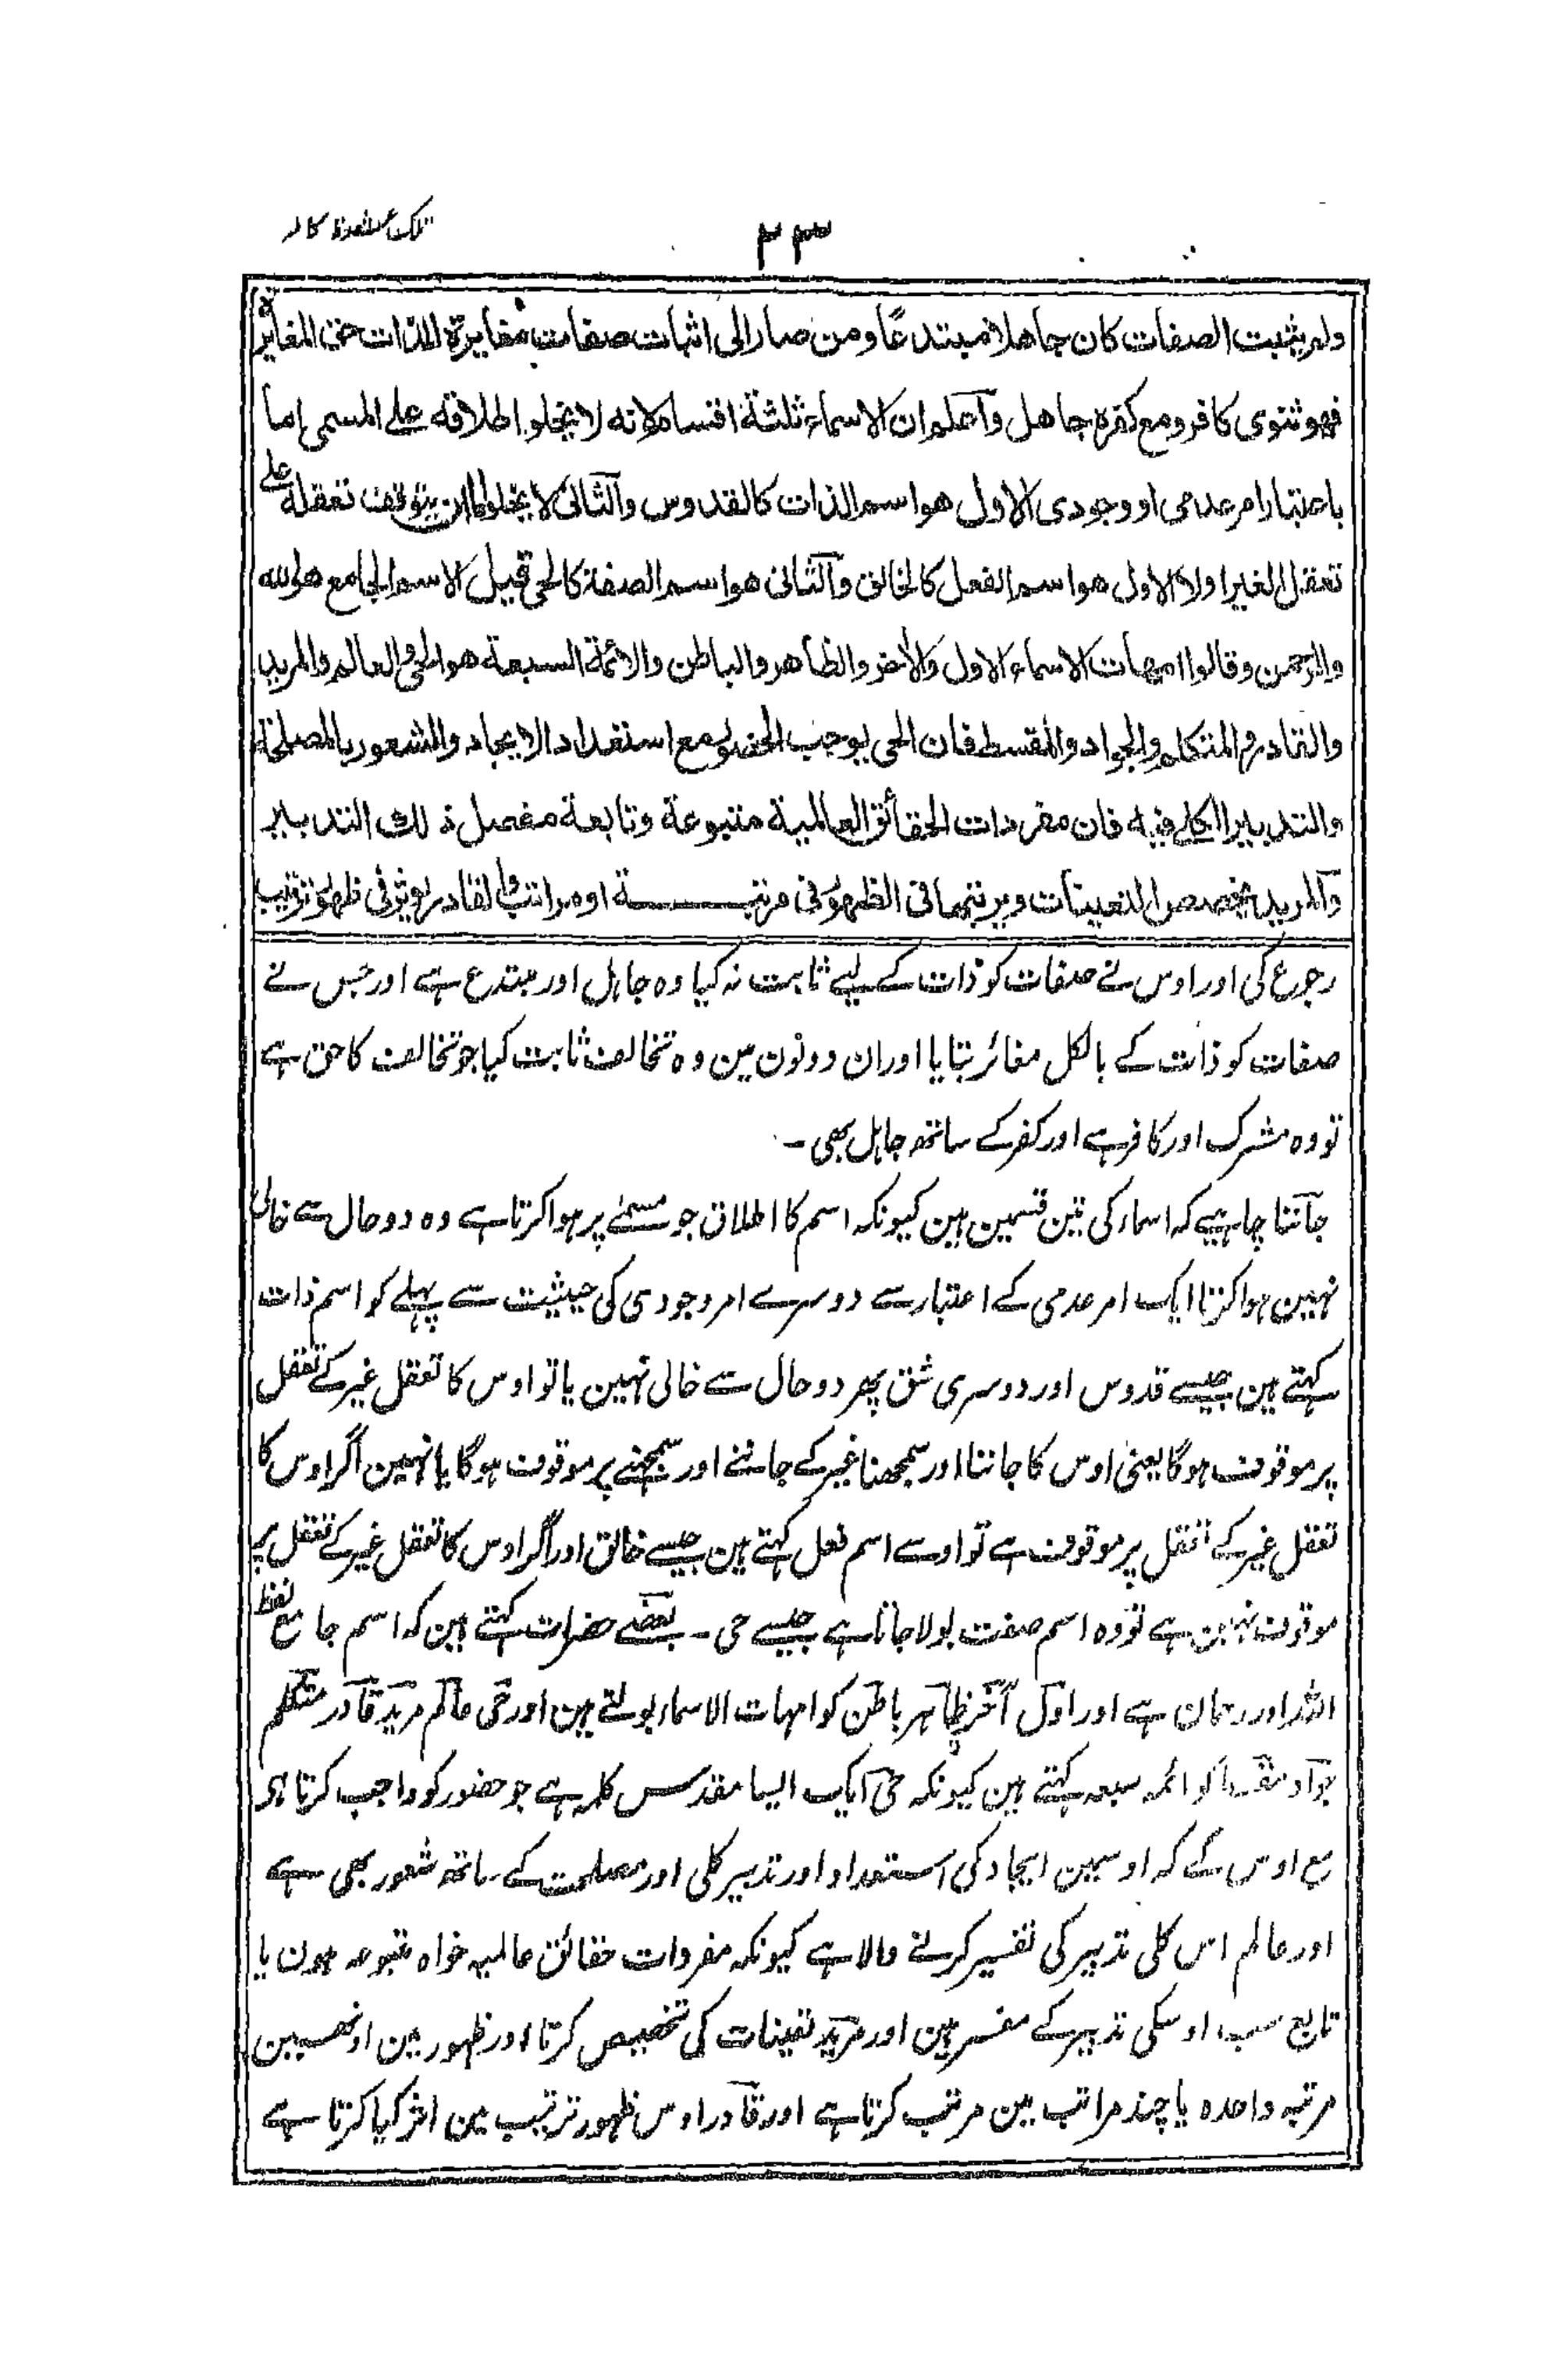 ٣٣
تلک عشرة کاملہ
ولم يثبت الصفات كان جاهلا مبتدعًا ومن صار الى اثبات صفات مغايرة للذات حق المغايرة
فهو ثنوى كافر ومع كفره جاهل وآعلم ان الاسماء ثلثة اقسام لانه لا يخلو اطلاقه على المسمى إما
باعتبار امر عدمى او وجودى الاول هو اسم الذات كالقدوس وآلثانى لا يخلو اما ان يتوقف تعقله على
تعقل الغير اولا الاول هو اسم الفعل كالخالق وآلثانى هو اسم الصفة كالحى قيل الاسم الجامع هو الله
والرحمن وقالوا امهات الاسماء الاول والأخر والظاهر والباطن والائمة السبعة هو الحى والعالم والمريد
والقادر والمتكلم والجواد والمقسط فان الحى يوجب الحضور مع استعداد الايجاد والشعور بالمصلحة
والتدبير الكلى فيه فان مفردات الحقائق العالمية متبوعة وتابعة مفصل ذلك التدبير
وآلمريد يخصص التعينات ويرتبها فى الظهور فى مرتبة او مراتب والقادر يؤثر فى ظهور ترتيب
رجوع کی اور اوس نے صفات کو ذات کے لیے ثابت نہ کیا وہ جاہل اور مبتدع ہے اور جس نے
صفات کو ذات کے بالکل مغائر بتایا اور ان دونون مین وہ تخالف ثابت کیا جو تخالف کا حق ہے
تو وہ مشرک اور کافر ہے اور کفر کے ساتھ جاہل بھی ۔
جآننا چاہیے کہ اسماء کی تین قسمین ہین کیونکہ اسم کا اطلاق جو مسمے پر ہوا کرتا ہے وہ دو حال سے خالی
نہین ہوا کرتا ایک امر عدمی کے اعتبار سے دوسرے امر وجودی کی حیثیت سے پہلے کو اسم ذات
کہتے ہین جیسے قدوس اور دوسری شق پھر دو حال سے خالی نہین یا تو اوس کا تعقل غیر کے تعقل
پر موقوف ہوگا یعنی اوس کا جاننا اور سمجھنا غیر کے جاننے اور سمجہنے پر موقوف ہوگا یا نہین اگر اوس کا
تعقل غیر کے تعقل پر موقوف ہے تو اوسے اسم فعل کہتے ہین جیسے خالق اور اگر اوس کا تعقل غیر کے تعقل پر
موقوف نہین ہے تو وہ اسم صفت بولا جاتا ہے جیسے حی ۔ بعضے حضرات کہتے ہین کہ اسم جامع لفظ
اللہ اور رحمان ہے اور اوّل آخر ظاہر باطن کو امہات الاسماء بولتے ہین اور حی عالم مرید قادر متکلم
جواد مقسط کو ائمہ سبعہ کہتے ہین کیونکہ حی ایک ایسا مقدس کلمہ ہے جو حضور کو واجب کرتا ہو
مع اوس کے کہ اوسمین ایجاد کی استعداد اور تدبیر کلی اور مصلحت کے ساتھ شعور بھی ہے
اور عالم اس کلی تدبیر کی تفسیر کرنے والا ہے کیونکہ مفردات حقائق عالمیہ خواہ متبوعہ ہون یا
تابع سب اوسکی تدبیر کے مفسر ہین اور مرید تعینات کی تخصیص کرتا اور ظہور مین اونھین
مرتبہ واحدہ یا چند مراتب مین مرتب کرتا ہے اور قادر اوس ظہور ترتیب مین اثر کیا کرتا ہے